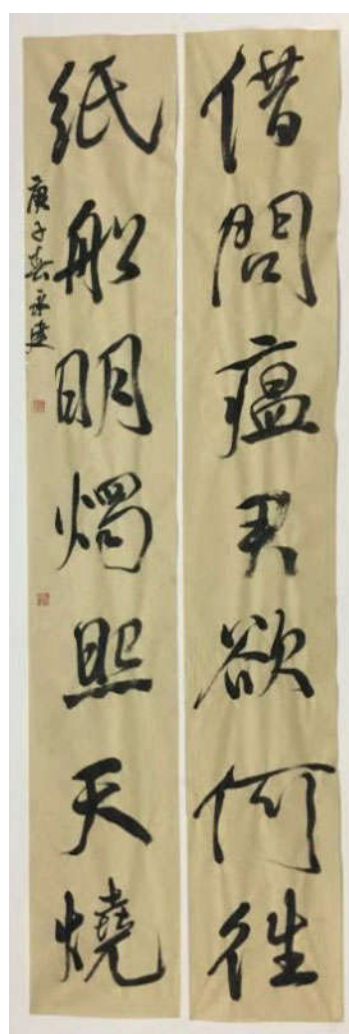 借問瘟君欲何往
紙船明燭照天燒
庚子春